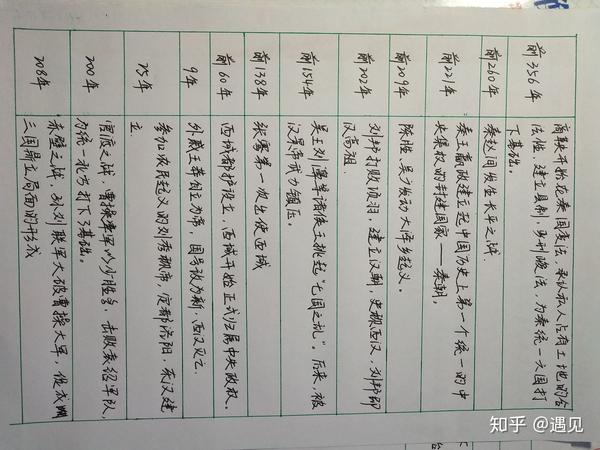 前356年
商鞅开始在秦国变法,承认私人占有土地的合
法性,建立县制,为秦统一六国打
下基础。
前260年
秦赵间发生长平之战。
前221年
秦王嬴政建立起中国历史上第一个统一的中
央集权的封建国家——秦朝。
前209年
陈胜、吴广发动大泽乡起义。
前202年
刘邦打败项羽,建立汉朝,史称西汉,刘邦即
汉高祖.
前154年
吴王刘濞等诸侯王挑起“七国之乱”。后来,被
汉景帝武力镇压。
前138年
张骞第一次出使西域
前60年
西域都护设立,西域开始正式归属中央政权。
9年
外戚王莽创立为帝,国号改为新,西汉灭亡.
25年
参加农民起义的刘秀称帝,定都洛阳,东汉建
立.
200年
官渡之战,曹操率军以少胜多,击败袁绍军队,
为统一北方打下了基础。
208年
赤壁之战,孙刘联军大破曹操大军,促成
三国鼎立局面的形成
知乎 @遇见